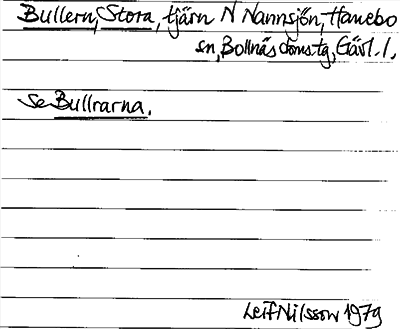 Bullern, Stora, tjärn N Nannsjön, Hanebo
sn, Bollnäs domstg, Gävl. l.
Se Bullrarna.
Leif Nilsson 1979